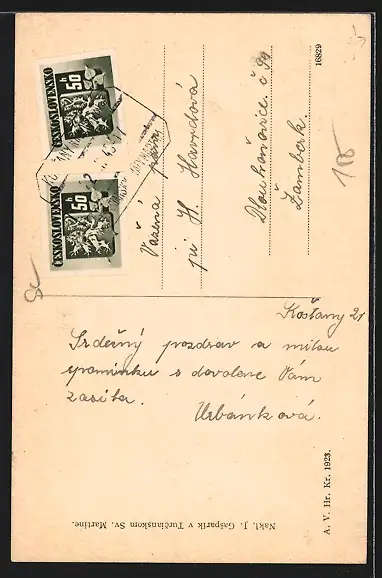 ČESKOSLOVENSKO
50 h
ČESKOSLOVENSKO
50 h
Vážená paní
pí H. Havrdová
Dlouhoňovice. č 94
Žamberk.
16829
Košťany 21
Srdečný pozdrav a milou
vpomínku s dovolené Vám
zasíla. Urbánková.
A. V. Hr. Kr. 1923.
Nakl. J. Gašparík v Turčianskom Sv. Martine.